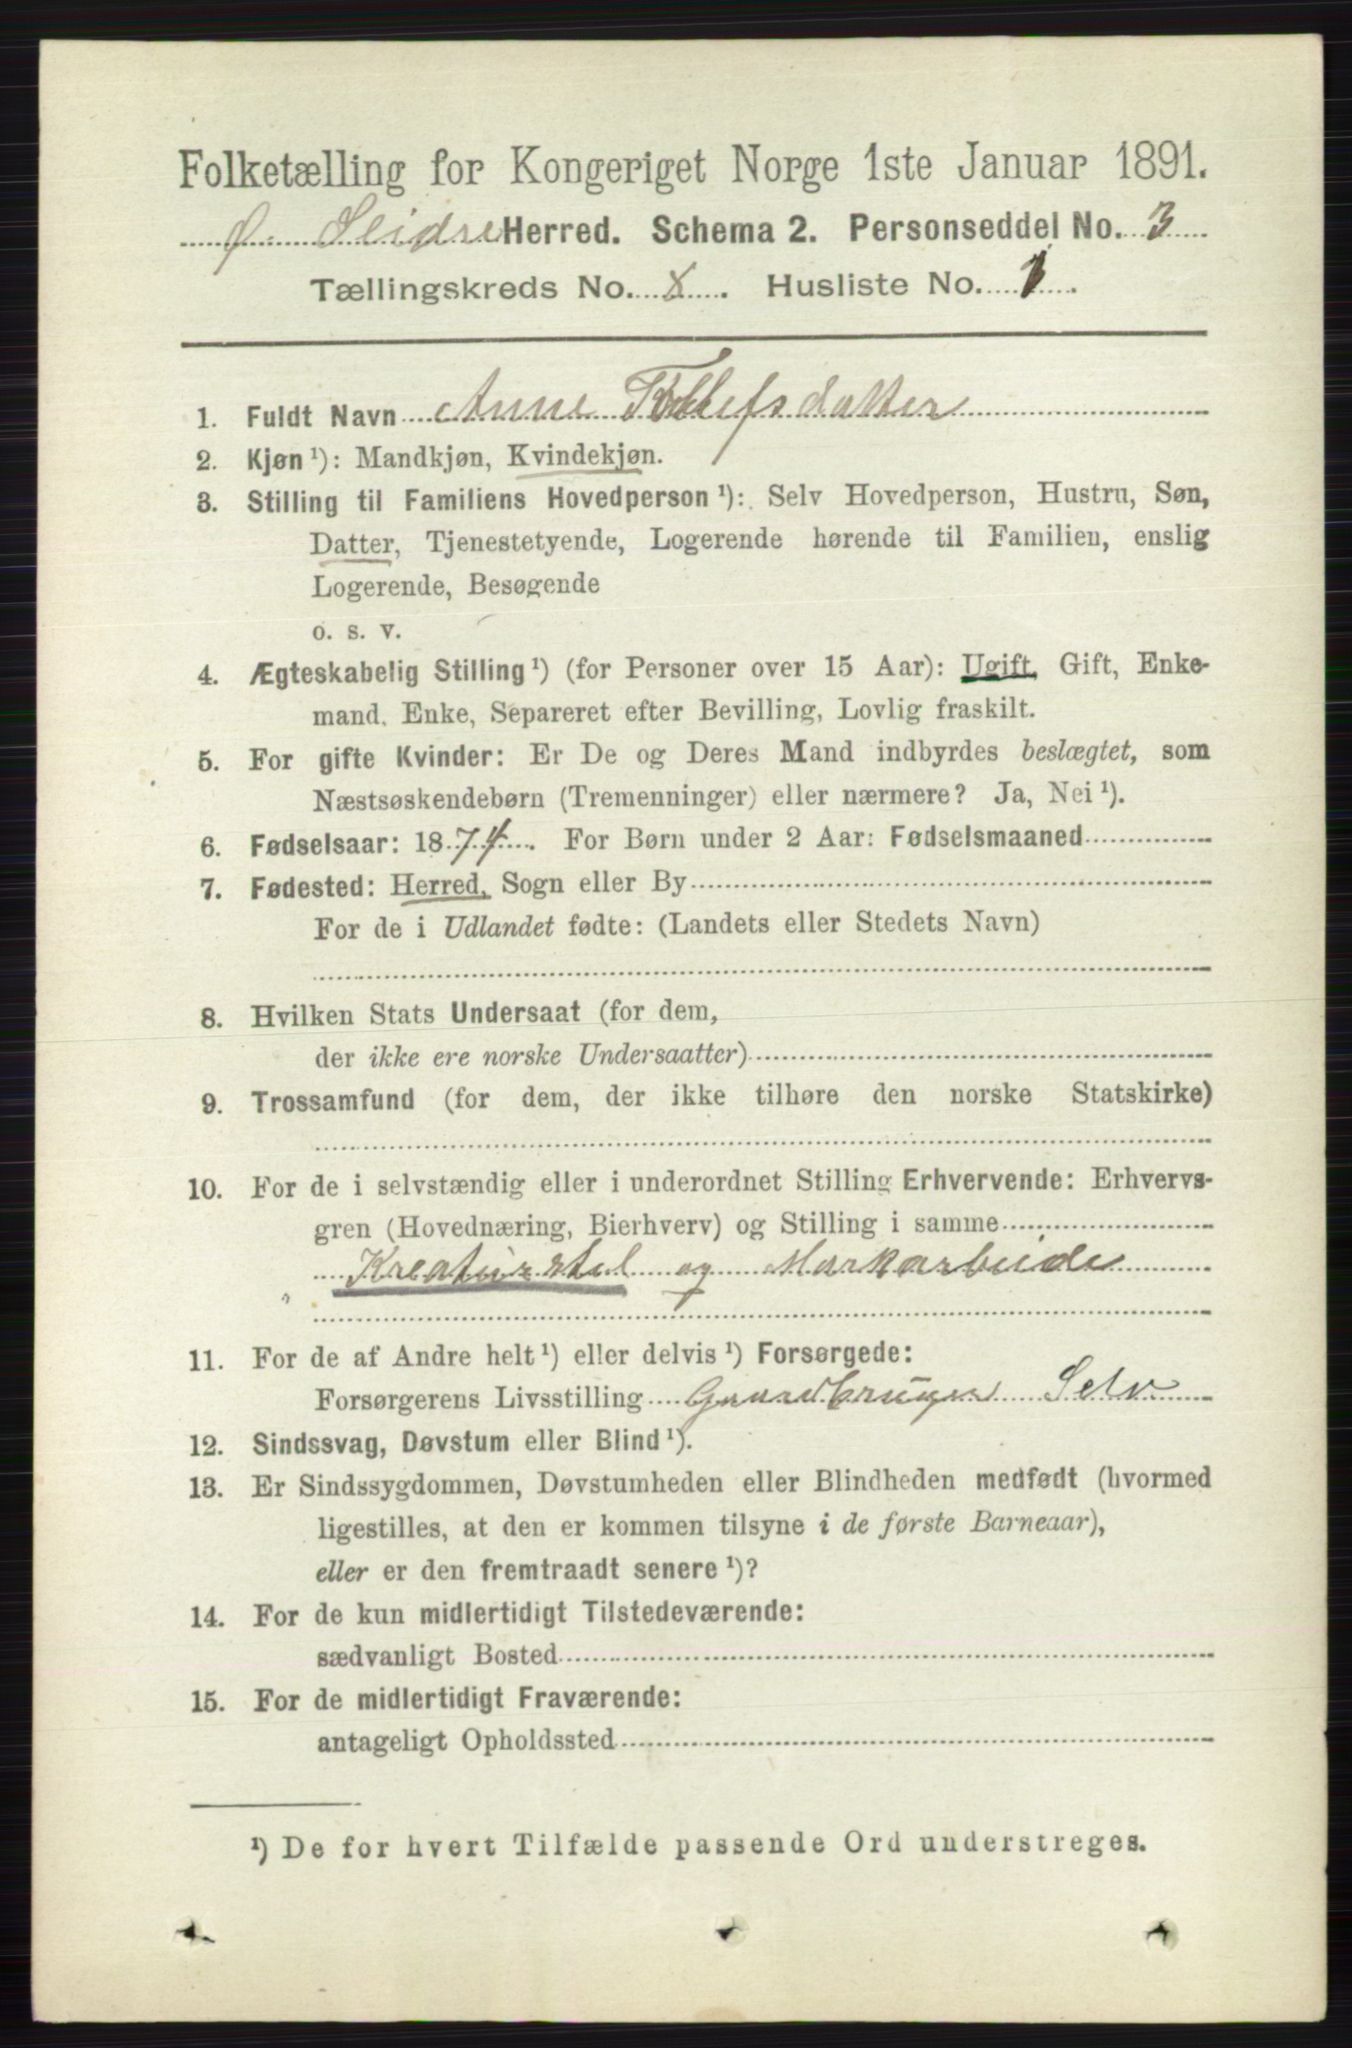 Folketælling for Kongeriget Norge 1ste Januar 1891.
Ø. Slidre Herred. Schema 2. Personseddel No. 3
Tællingskreds No. 8. Husliste No. 1.
1. Fuldt Navn Anne Tollefsdatter
2. Kjøn ¹): Mandkjøn, Kvindekjøn.
3. Stilling til Familiens Hovedperson ¹): Selv Hovedperson, Hustru, Søn,
Datter, Tjenestetyende, Logerende hørende til Familien, enslig
Logerende, Besøgende
o. s. v.
4. Ægteskabelig Stilling ¹) (for Personer over 15 Aar): Ugift, Gift, Enke-
mand, Enke, Separeret efter Bevilling, Lovlig fraskilt.
5. For gifte Kvinder: Er De og Deres Mand indbyrdes beslægtet, som
Næstsøskendebørn (Tremenninger) eller nærmere? Ja, Nei ¹).
6. Fødselsaar: 1874. For Børn under 2 Aar: Fødselsmaaned
7. Fødested: Herred, Sogn eller By
For de i Udlandet fødte: (Landets eller Stedets Navn)
8. Hvilken Stats Undersaat (for dem,
der ikke ere norske Undersaatter)
9. Trossamfund (for dem, der ikke tilhøre den norske Statskirke)
10. For de i selvstændig eller i underordnet Stilling Erhvervende: Erhvervs-
gren (Hovednæring, Bierhverv) og Stilling i samme
Kreaturstel og Markarbeide
11. For de af Andre helt ¹) eller delvis ¹) Forsørgede:
Forsørgerens Livsstilling Gaardbruger Selv
12. Sindssvag, Døvstum eller Blind ¹).
13. Er Sindssygdommen, Døvstumheden eller Blindheden medfødt (hvormed
ligestilles, at den er kommen tilsyne i de første Barneaar),
eller er den fremtraadt senere ¹)?
14. For de kun midlertidigt Tilstedeværende:
sædvanligt Bosted
15. For de midlertidigt Fraværende:
antageligt Opholdssted
¹) De for hvert Tilfælde passende Ord understreges.